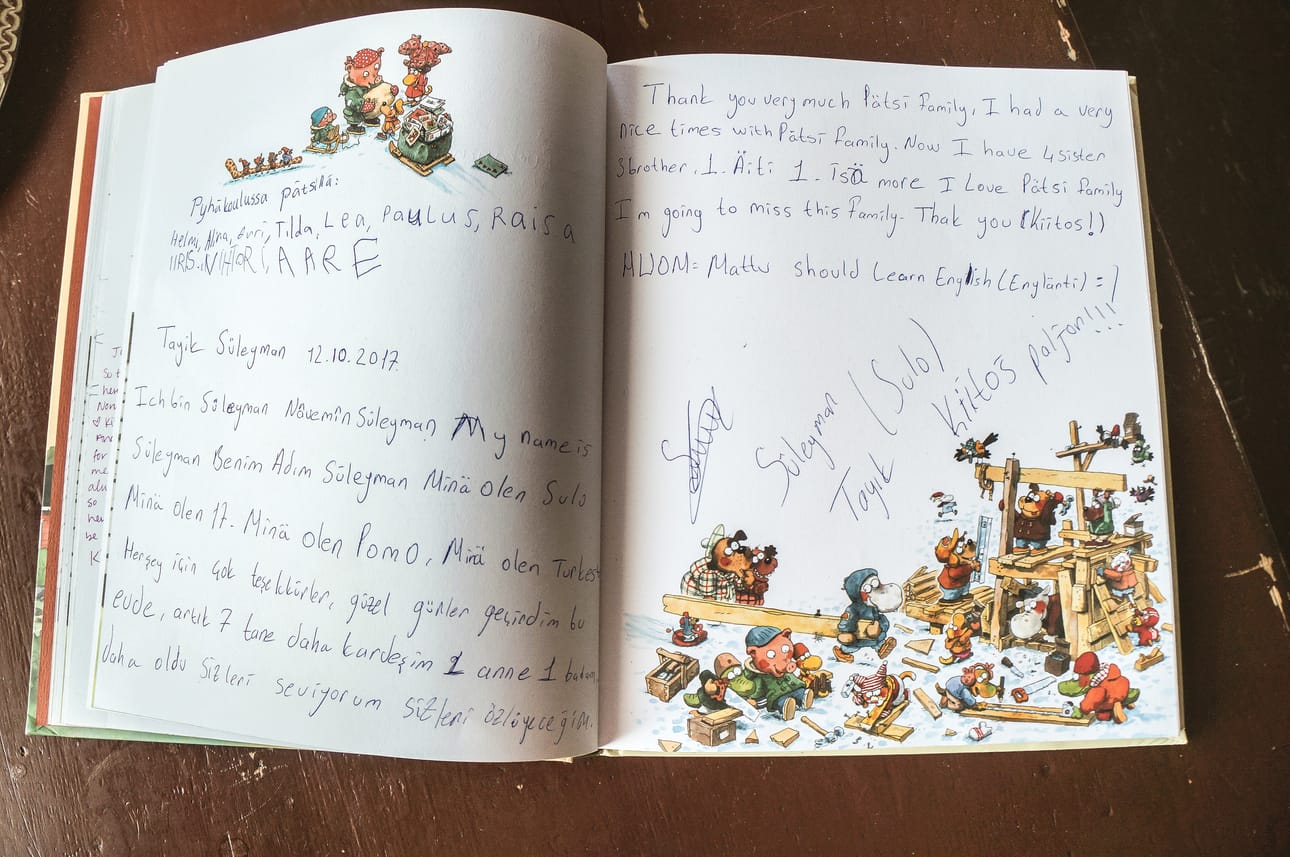 Pyhäkoulussa pätsillä:
Helmi, Alina, Tilda, Lea, PAULUS, RAISA
IIRIS, VIHTORI, AARE
Tayik Süleyman 12.10.2017
Ich bin Süleyman Navemin Süleyman My name is
Süleyman Benim Adım Süleyman Minä olen Sulo
Minä olen 17. Minä olen Pomo, Minä olen Turkest
Herşey için çok teşekkürler, güzel günler geçirdim bu
evde, artık 7 tane daha kardeşim 1 anne 1 babam
daha oldu Sizleri seviyorum Sizleri özlüyeceğim.
Thank you very much Pätsi family, I had a very
nice times with Pätsi family. Now I have 4 sister
3 brother, 1. Äiti 1. isä more I Love Pätsi family
I'm going to miss this family. Thak you (Kiitos!)
HUOM= Mattu should Learn English (Englänti) =)
Süleyman (Sulo)
Tayik Kiitos paljon!!!